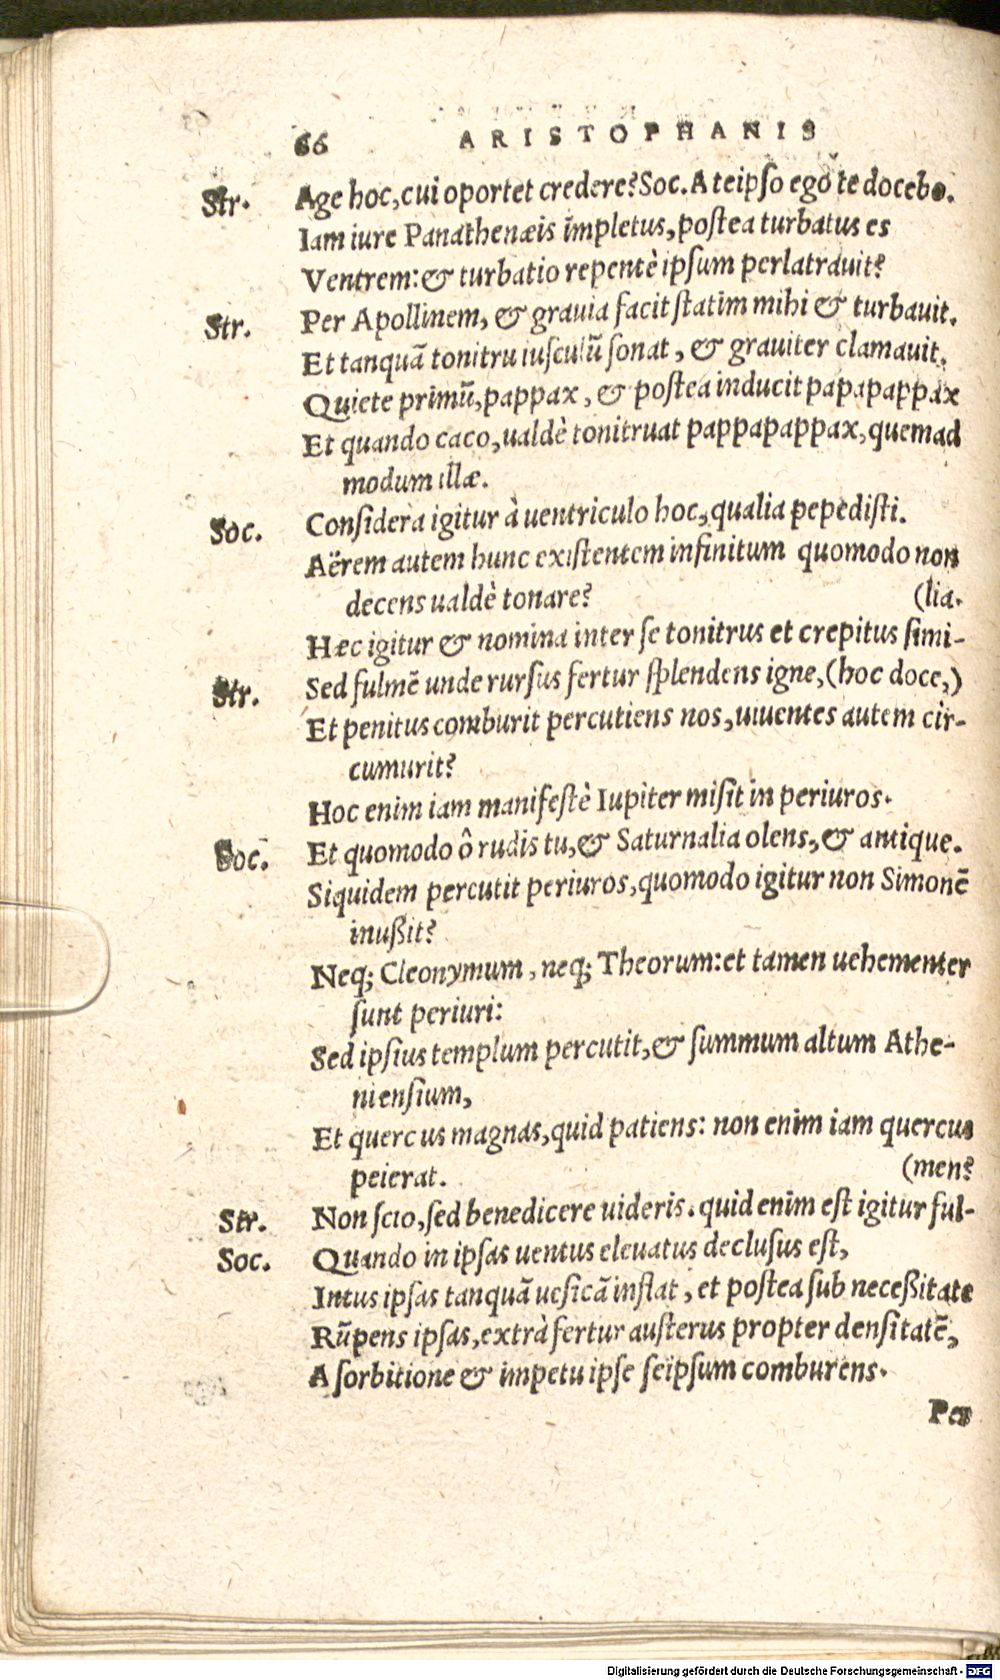 66 ARISTOPHANIS
Str. Age hoc, cui oportet credere? Soc. A teipso ego te docebo.
Iam iure Panathenæis impletus, postea turbatus es
Ventrem: & turbatio repentè ipsum perlatrauit?
Str. Per Apollinem, & grauia facit statim mihi & turbauit.
Et tanquã tonitru iusculũ sonat, & grauiter clamauit.
Quiete primũ, pappax, & postea inducit papapappax
Et quando caco, ualdè tonitruat pappapappax, quemad
modum illæ.
Soc. Considera igitur à uentriculo hoc, qualia pepedisti.
Aërem autem hunc existentem infinitum quomodo non
decens ualdè tonare? (lia.
Hæc igitur & nomina inter se tonitrus et crepitus simi-
Str. Sed fulmẽ unde rursus fertur splendens igne, (hoc doce,)
Et penitus comburit percutiens nos, uiuentes autem cir-
cumurit?
Hoc enim iam manifestè Iupiter misit in periuros.
Soc. Et quomodo ô rudis tu, & Saturnalia olens, & antique.
Siquidem percutit periuros, quomodo igitur non Simonẽ
inußit?
Neq; Cleonymum, neq; Theorum: et tamen uehementer
sunt periuri:
Sed ipsius templum percutit, & summum altum Athe-
niensium,
Et quercus magnas, quid patiens: non enim iam quercus
peierat. (men?
Str. Non scio, sed benedicere uideris. quid enim est igitur ful-
Soc. Quando in ipsas uentus eleuatus declusus est,
Intus ipsas tanquã uesicã inflat, et postea sub neceßitate
Rũpens ipsas, extrà fertur austerus propter densitatẽ,
A sorbitione & impetu ipse seipsum comburens.
Per
Digitalisierung gefördert durch die Deutsche Forschungsgemeinschaft - DFG